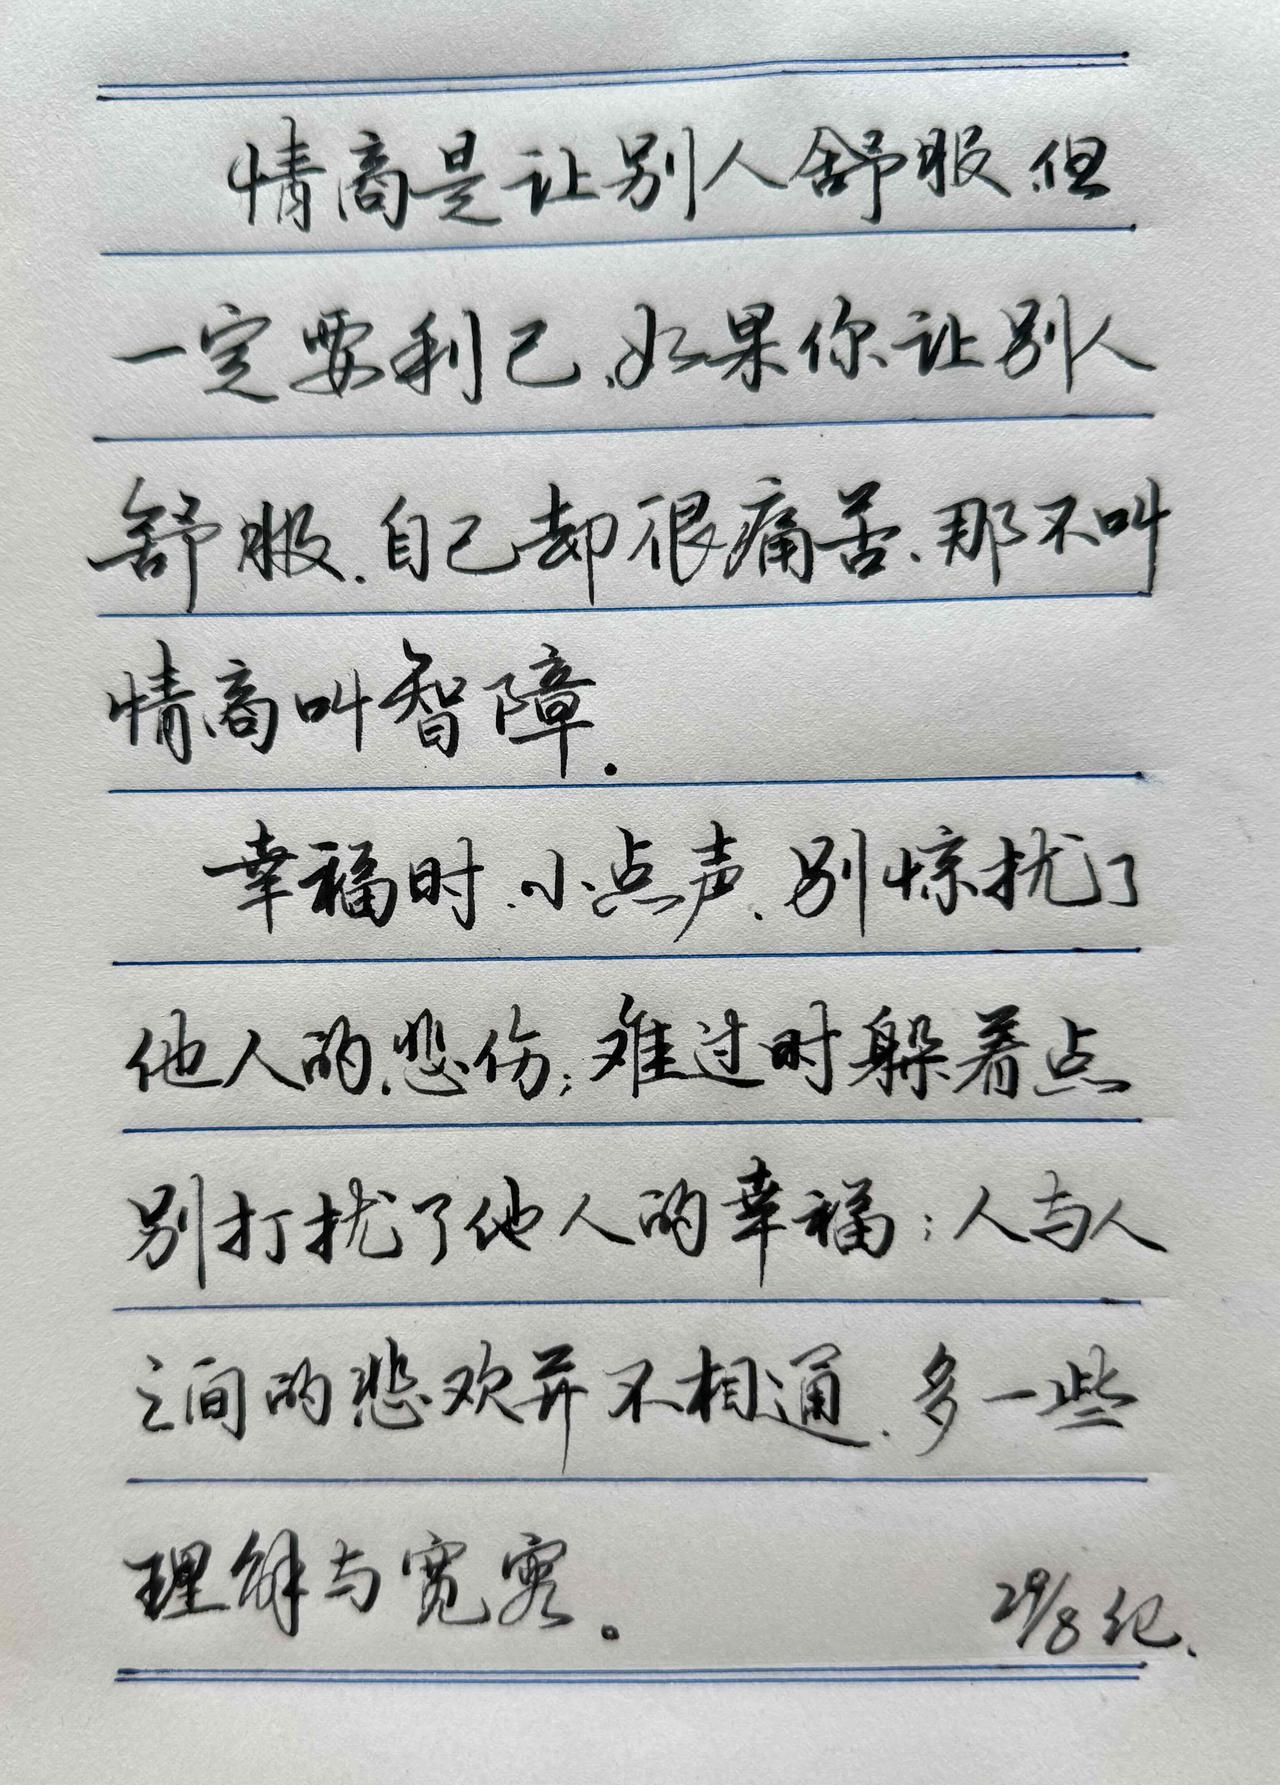 情商是让别人舒服.但
一定要利己.如果你让别人
舒服.自己却很痛苦.那不叫
情商叫智障.
幸福时.小点声.别惊扰了
他人的悲伤;难过时躲着点
别打扰了他人的幸福;人与人
之间的悲欢并不相通.多一些
理解与宽容。
29/8 纪.